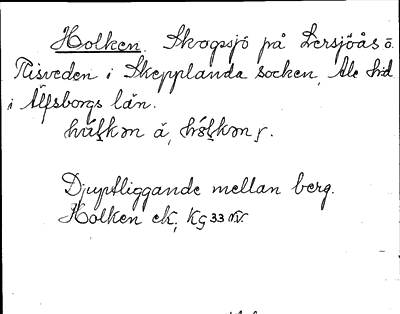 Holken. Skogssjö på Lersjöås ö.
Risveden i Skepplanda socken, Ale hd
i Älfsborgs län.
Djuptliggande mellan berg.
Holken ek, KG 33 NV.